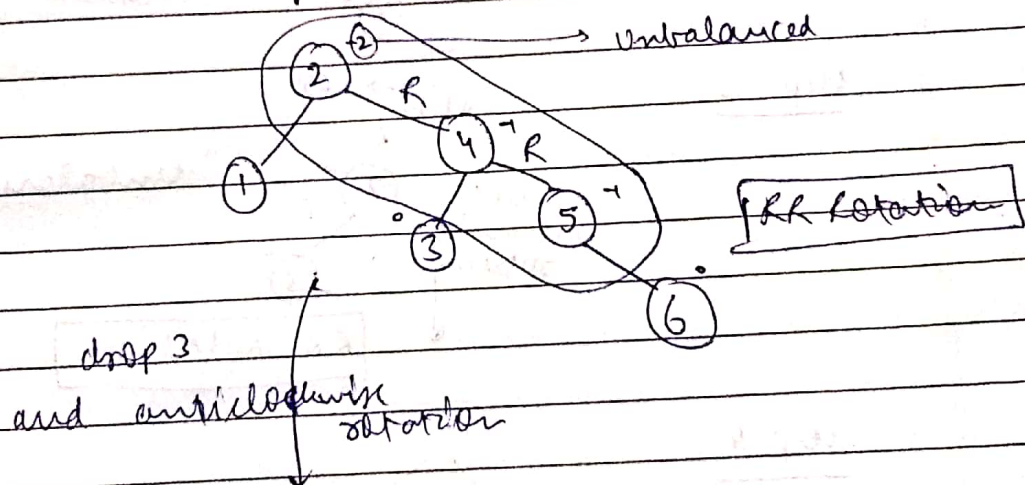 -2 → Unbalanced
2
R
4 -1 R
1
5 -1
RR Rotation
3
6
drop 3
and anticlockwise
rotation